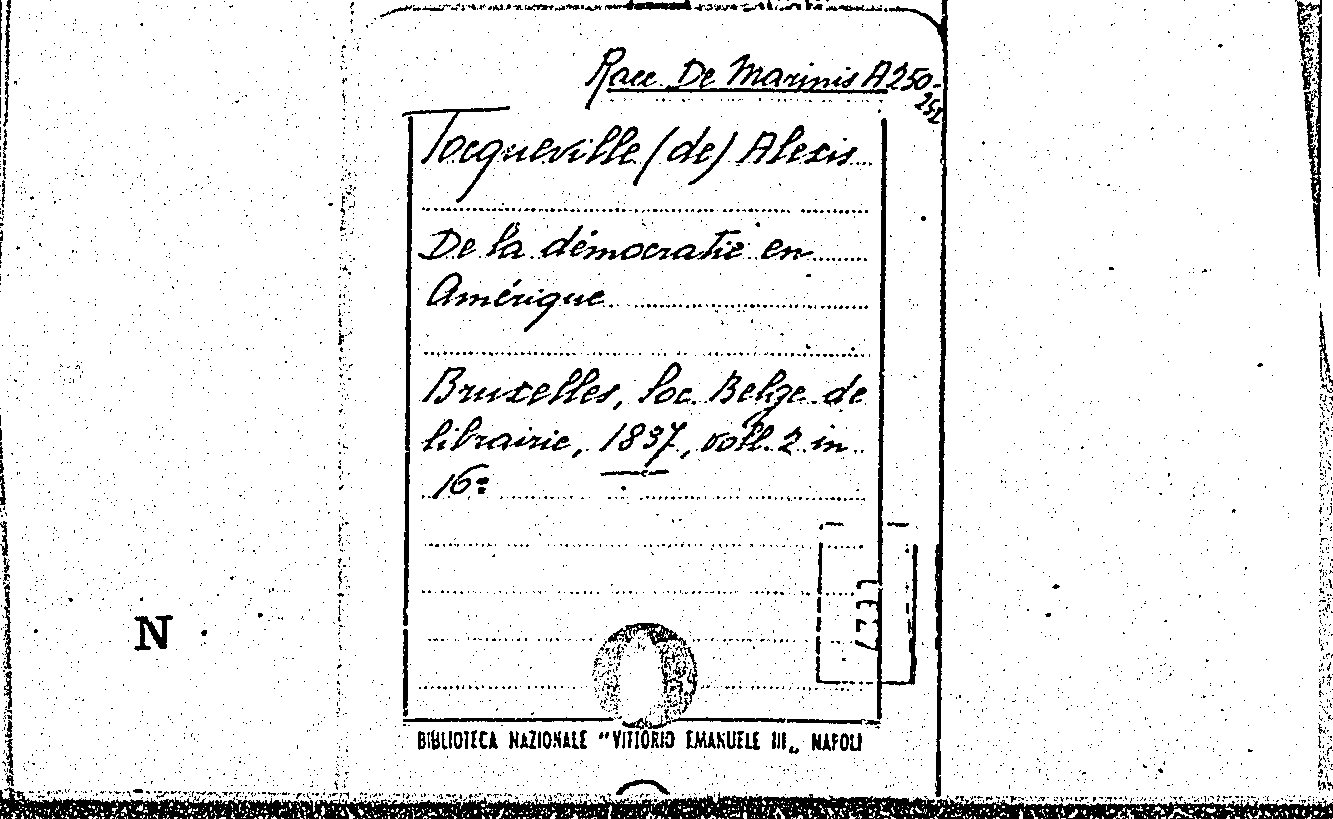 Racc. De Marinis A250-
252
Tocqueville (de) Alexis
De la démocratie en
Amérique
Bruxelles, Soc. Belge de
librairie, 1837, voll. 2 in
16º
N
BIBLIOTECA NAZIONALE "VITTORIO EMANUELE III„ NAPOLI